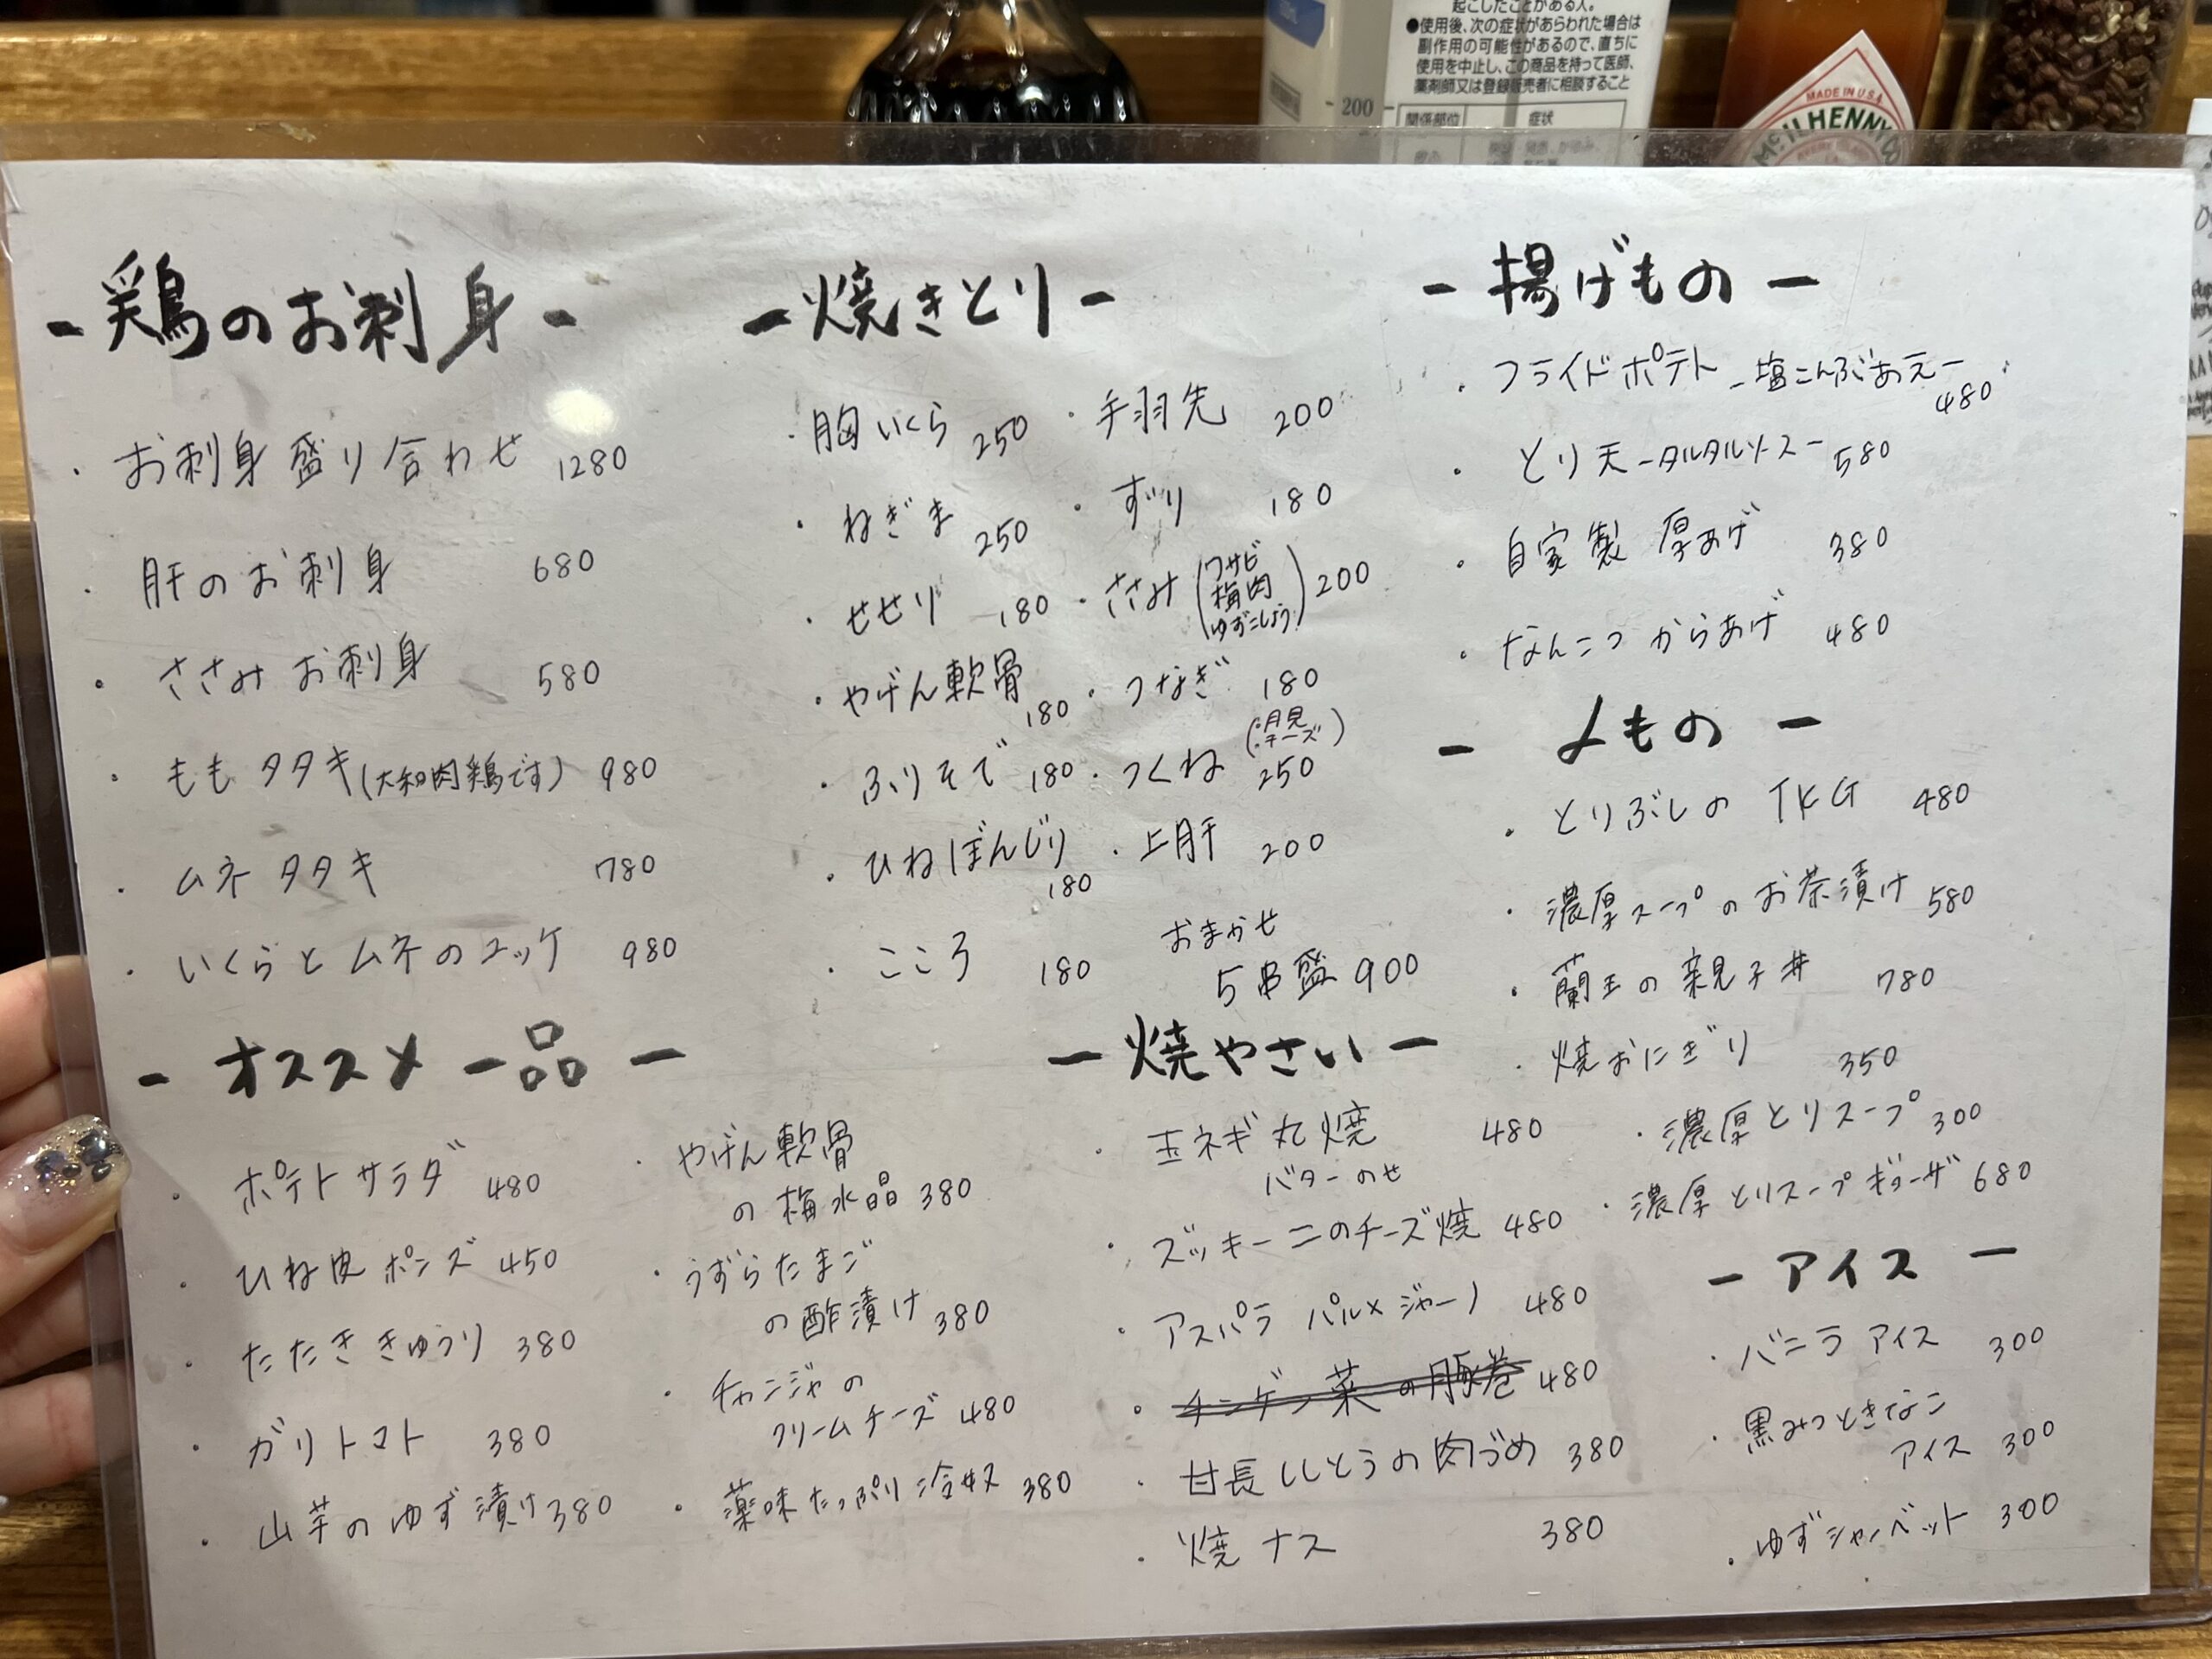 起こしたことがある人。
●使用後、次の症状があらわれた場合は
副作用の可能性があるので、直ちに
使用を中止し、この商品を持って医師、
薬剤師又は登録販売者に相談すること
関係部位 症状
200
MADE IN U.S.A.
McILHENNY CO
- 鶏のお刺身 -
・お刺身盛り合わせ 1280
・肝のお刺身 680
・ささみお刺身 580
・ももタタキ(大和肉鶏です) 980
・ムネタタキ 780
・いくらとムネのユッケ 980
- 焼きとり -
・胸いくら 250
・ねぎま 250
・せせり 180
・やげん軟骨 180
・ふりそで 180
・ひねぼんじり 180
・こころ 180
・手羽先 200
・ずり 180
・ささみ(ワサビ 梅肉 ゆずこしょう) 200
・つなぎ 180
・つくね(・月見 ・チーズ) 250
・上肝 200
おまかせ
5串盛 900
- 揚げもの -
・フライドポテト -塩こんぶあえ- 480
・とり天 -タルタルソース- 580
・自家製厚あげ 380
・なんこつからあげ 480
- 〆もの -
・とりぶしのTKG 480
・濃厚スープのお茶漬け 580
・蘭王の親子丼 780
・焼おにぎり 350
・濃厚とりスープ 300
・濃厚とりスープギョーザ 680
- オススメ一品 -
・ポテトサラダ 480
・ひね皮ポンズ 450
・たたききゅうり 380
・ガリトマト 380
・山芋のゆず漬け 380
・やげん軟骨
の梅水晶 380
・うずらたまご
の酢漬け 380
・チャンジャの
クリームチーズ 480
・薬味たっぷり冷奴 380
- 焼やさい -
・玉ネギ丸焼 480
バターのせ
・ズッキーニのチーズ焼 480
・アスパラ パルメジャーノ 480
・チンゲン菜の豚巻 480
・甘長ししとうの肉づめ 380
・焼ナス 380
- アイス -
・バニラアイス 300
・黒みつときなこ
アイス 300
・ゆずシャーベット 300